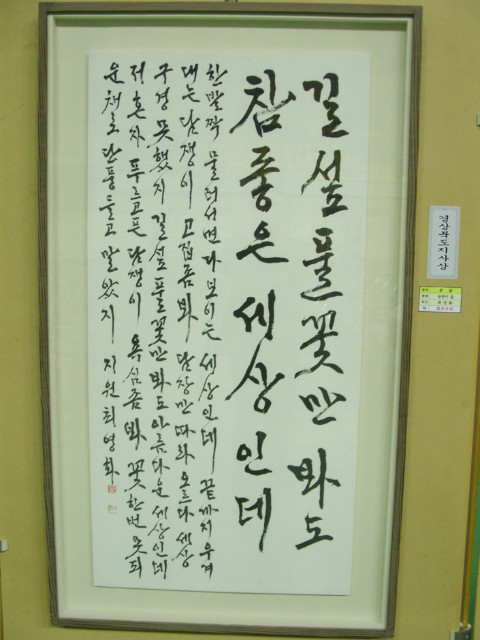 길섶 풀꽃만 봐도
참 좋은 세상인데
한발짝 물러서면 다 보이는 세상인데 끝까지 우겨
대는 담쟁이 고집 좀 봐 담장만 따라 오르다 세상
구경 못했지 길섶 풀꽃만 봐도 아름다운 세상인데
저 혼자 푸르고픈 담쟁이 욕심 좀 봐 꽃 한번 못 피
운 채로 단풍 들고 말았지 지원 최영화
경상북도지사상